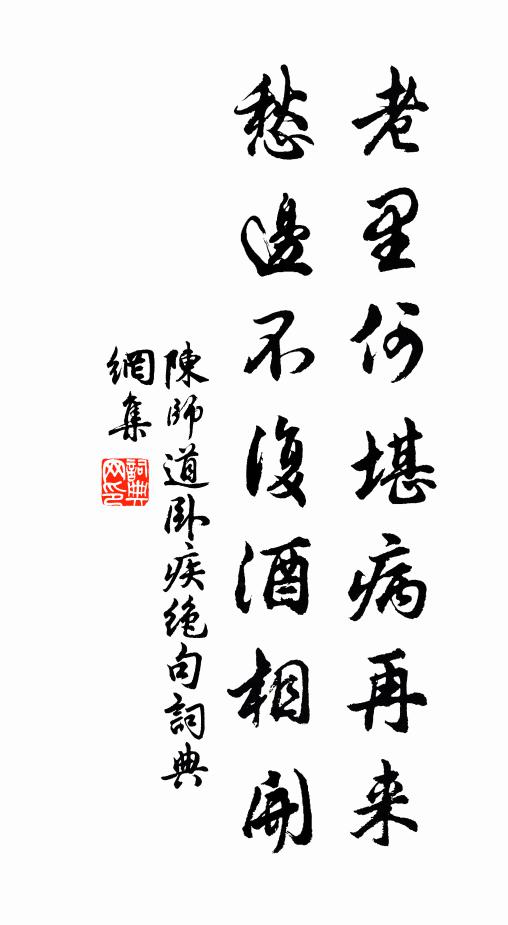 老里何堪病再来
愁邊不復酒相開
陳師道卧疾绝句詞典
網集
詞典網印